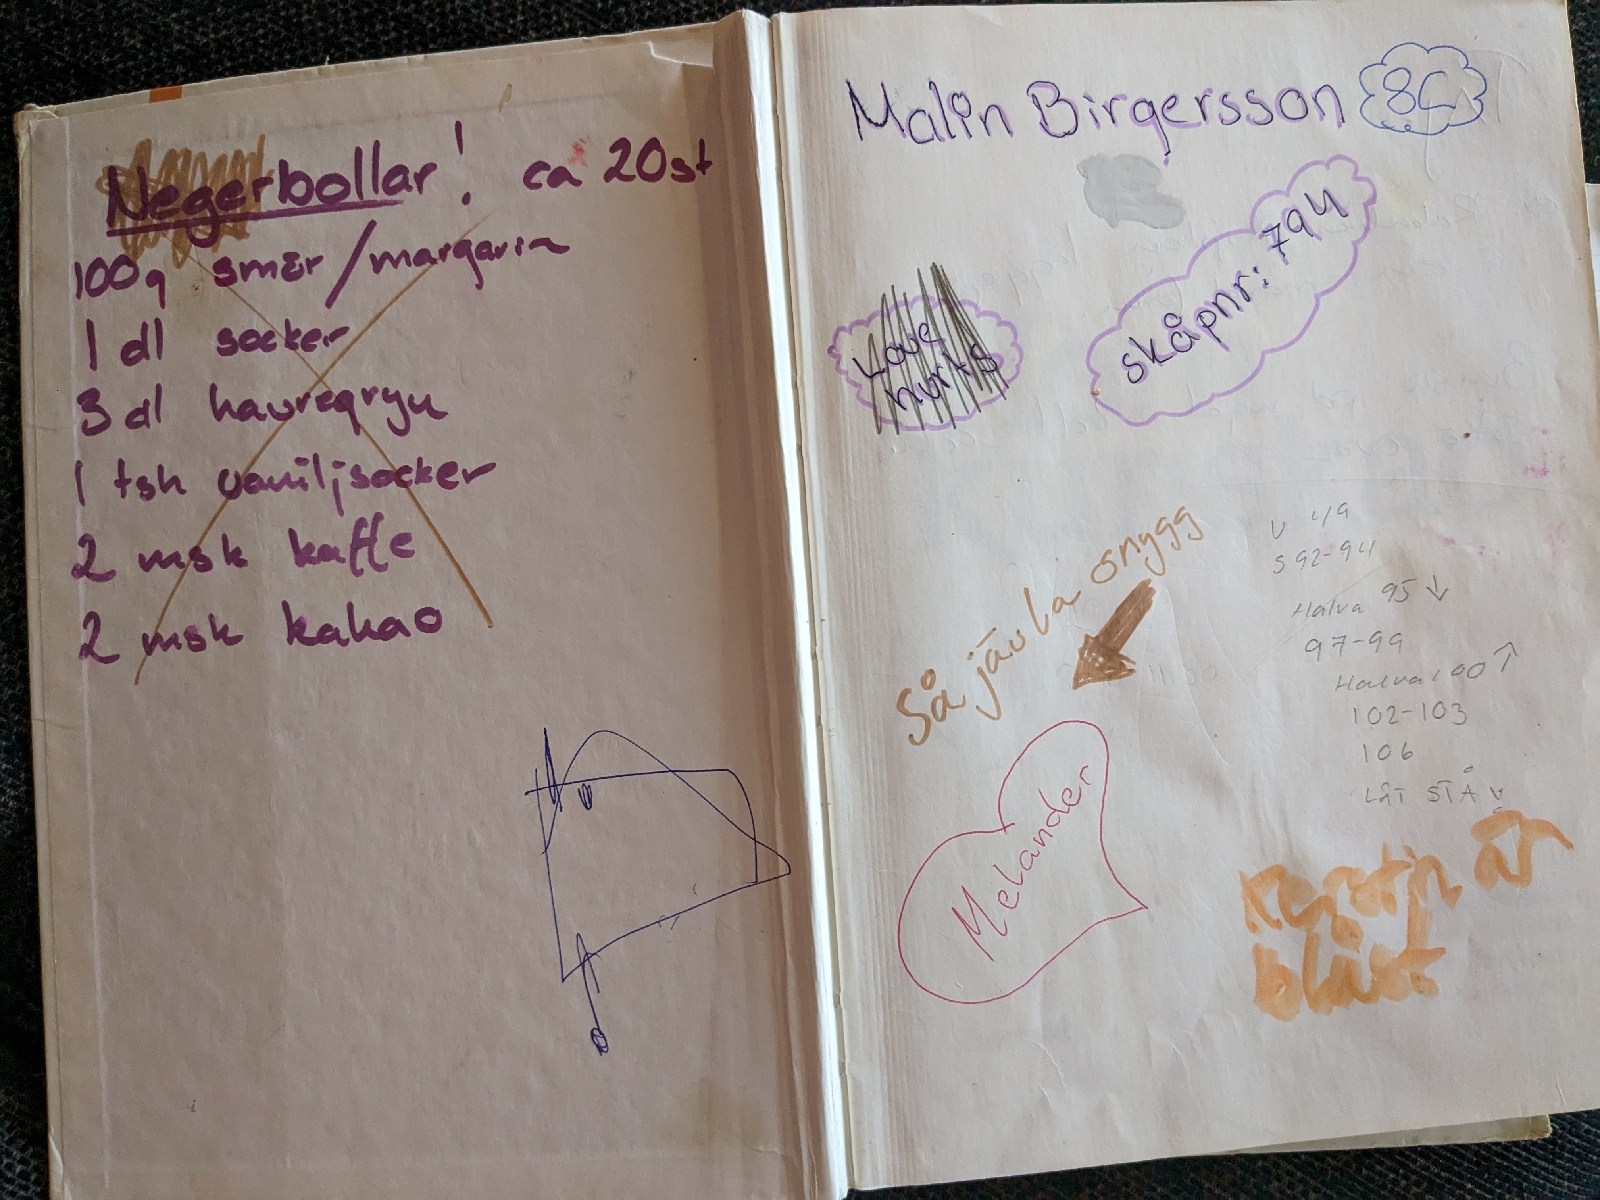 Negerbollar! ca 20st
100g smör/margarin
1 dl socker
3 dl havregryn
1 tsk vaniljsocker
2 msk kaffe
2 msk kakao
Malin Birgersson 8C
skåpnr: 794
Love
hurts
Så jävla snygg
Melander
V 49
S 92-94
Halva 95 ↓
97-99
Halva 100 ↑
102-103
106
LÅT STÅ
Kerstin är
bläst